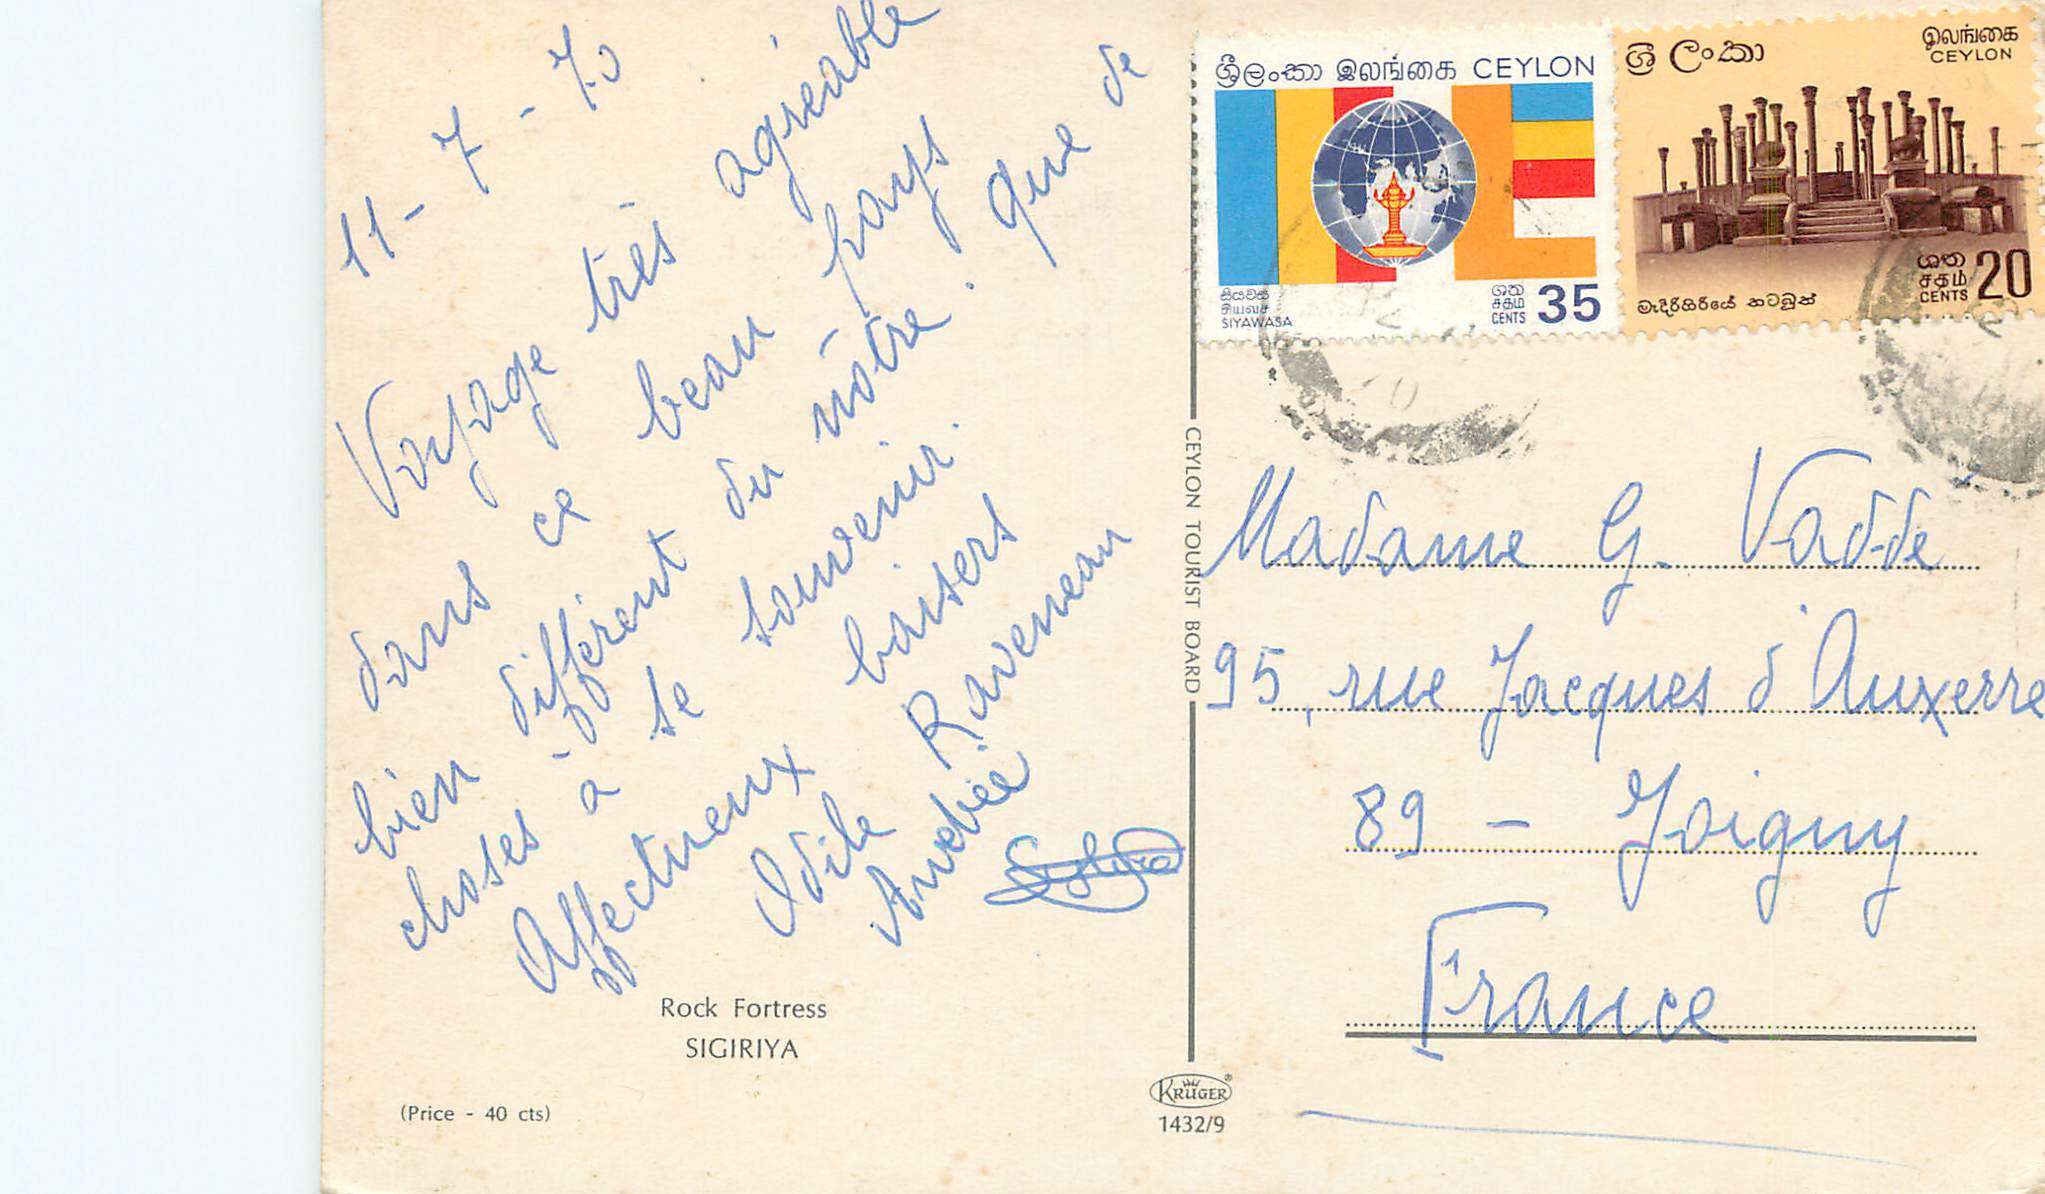 11-7-70
Voyage très agréable
dans ce beau pays
bien différent du nôtre. que de
choses à se souvenir.
Affectueux baisers
Odile Raveneau
Andrée
Rock Fortress
SIGIRIYA
(Price - 40 cts)
CEYLON TOURIST BOARD
KRÜGER
1432/9
ශ්‍රී ලංකා இலங்கை CEYLON
සියවස
சியவச
SIYAWASA
ශත
சதம்
CENTS 35
ශ්‍රී ලංකා
இலங்கை
CEYLON
මැදිරිගිරියේ කටබුත්
ශත
சதம்
CENTS 20
Madame G. Vaddé
95, rue Jacques d'Auxerre
89 - Joigny
France